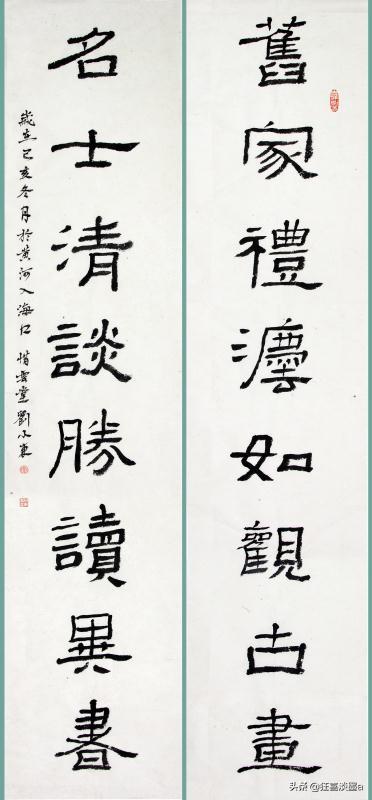 舊家禮灋如觀古畫
名士清談勝讀異書
歲在己亥冬月於黃河入海口 惜雲堂 劉小東
头条 @狂喜淡墨a